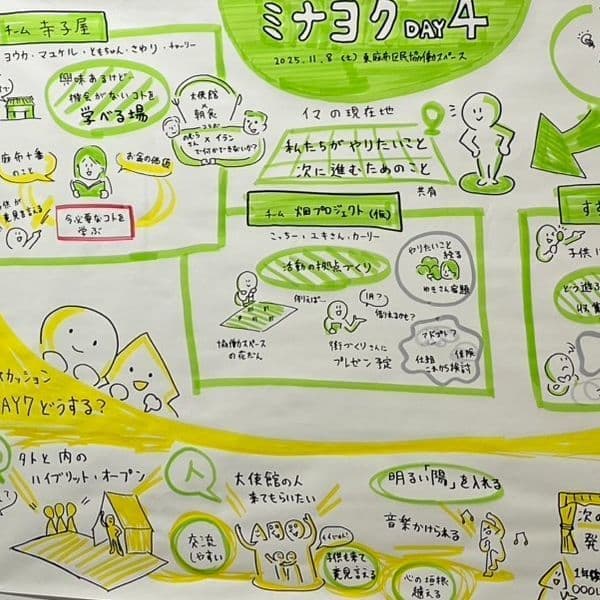 ミナヨク DAY4
2025.11.8(土) 東麻布区民協働スペース
チーム 寺子屋
ヨウカ・マユケル・ともちゃん・さわり・チャーリー
興味あるけど…
機会がないコトを
学べる場
大使館
×
朝食
コラボ
イラン
で何かできないか?
麻布十番
のこと
お金の価値
意見言える
今必要なコトを
学ぶ
イマの現在地
私たちがやりたいこと
次に進むためのこと
共有
チーム 畑プロジェクト(仮)
こっちー・ユキさん・カーリー
活動の拠点づくり
協働スペース
の花だん
例えば…
街づくりさんに
プレゼン予定
1月?
借りれるかも?
やりたいこと
ゆきさん宿題
アドプト?
仕組
保険
これから検討
子供に
どう進
収
スカッション
DAY7どうする?
外と内の
ハイブリット・オープン
人
大使館の人
来てもらいたい
交流
しやすい
子供も来て
意見言える
明るい「陽」を入れる
音楽かけられる
心の垣根
越える
次の
発
1年後